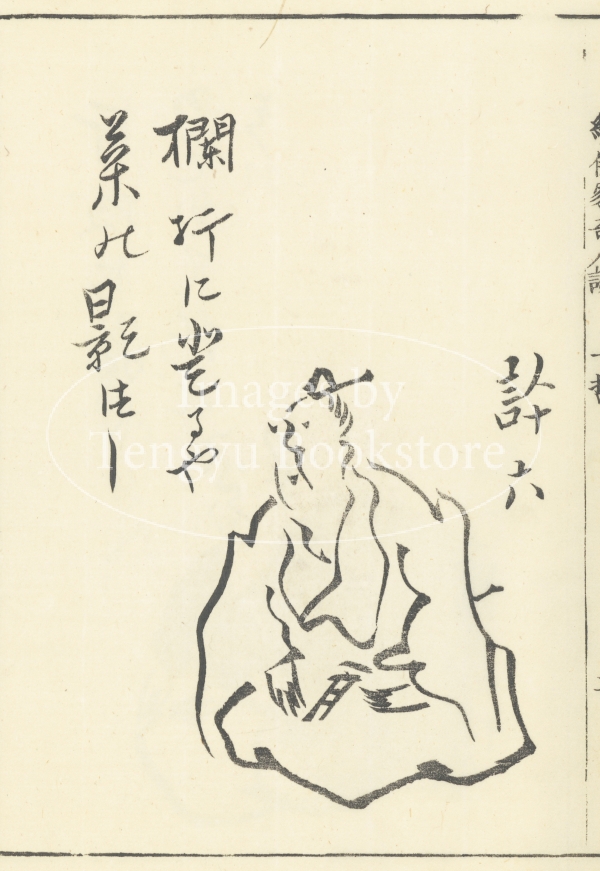 許六
欄杆に登るや
菊の影法し
Images by
Tengyu Bookstore